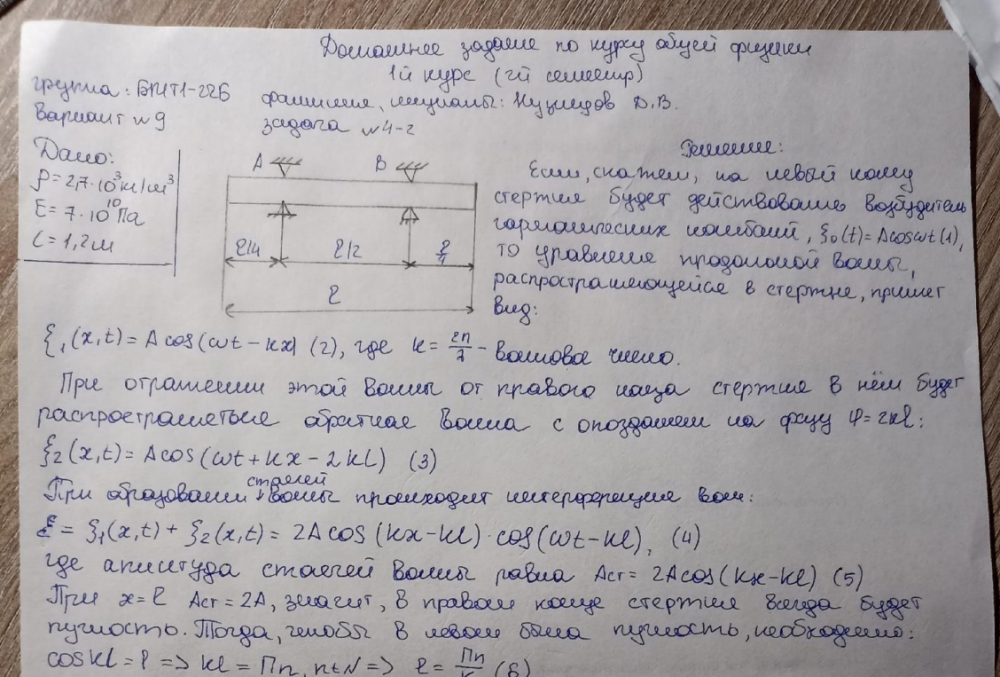 Домашнее задание по курсу общей физики
1й курс (2й семестр)
группа: БМТ1-22Б
фамилия, инициалы: Кузнецов Д.В.
Вариант №9
задача №4-2
Дано:
ρ = 2,7·10³кг/м³
E = 7·10¹⁰Па
l = 1,2м
A
B
l/4
l/2
l/4
l
Решение:
Если, скажем, на левый конец
стержня будет действовать возбудитель
гармонических колебаний, ξ₀(t) = Acosωt (1),
то уравнение продольной волны,
распространяющейся в стержне, примет
вид:
ξ₁(x,t) = A cos(ωt - kx) (2), где k = 2π/λ - волновое число.
При отражении этой волны от правого конца стержня в нём будет
распространяться обратная волна с опозданием на фазу φ = 2kl:
ξ₂(x,t) = Acos(ωt + kx - 2kl) (3)
При образовании стоячей волны происходит интерференция волн:
ξ = ξ₁(x,t) + ξ₂(x,t) = 2A cos(kx-kl)·cos(ωt-kl), (4)
где амплитуда стоячей волны равна Aст = 2Acos(kx-kl) (5)
При x = l Aст = 2A, значит, в правом конце стержня всегда будет
пучность. Тогда, чтобы в левом была пучность, необходимо:
cos kl = 1 => kl = πn, n∈N => l = πn/k (6)